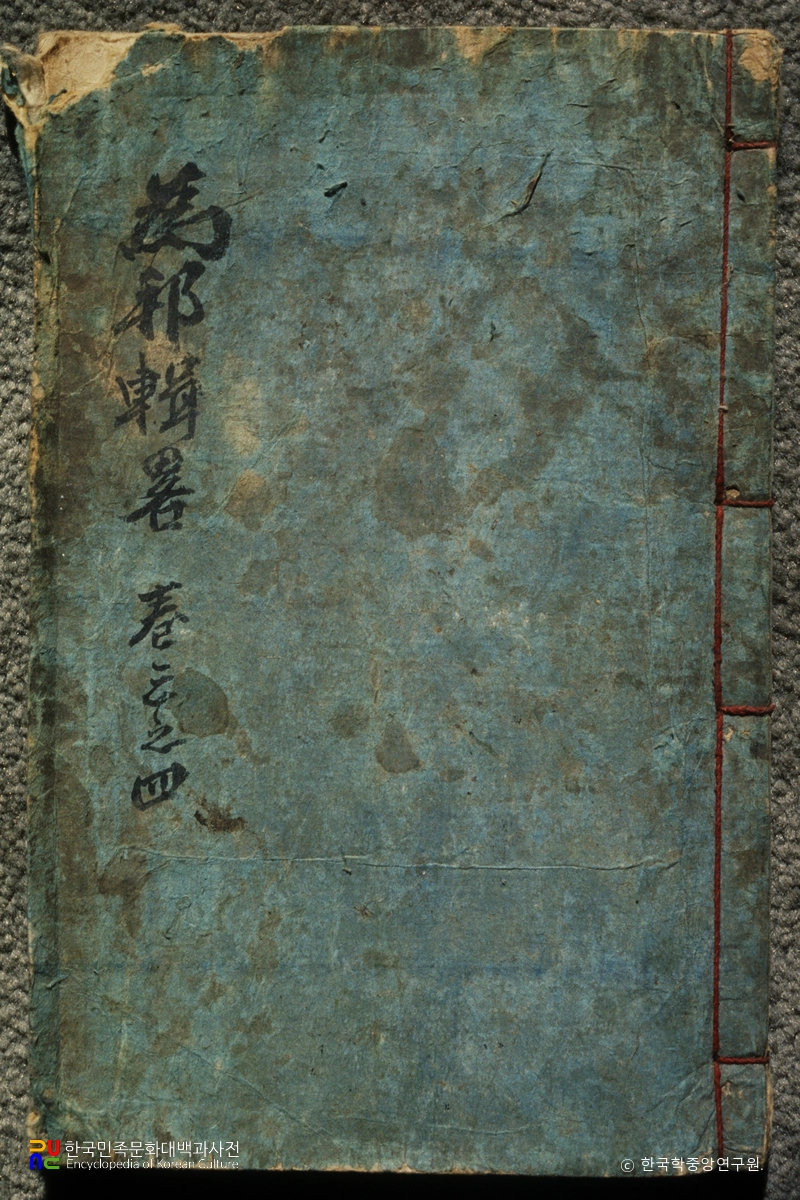 為邦輯畧 卷三之四
한국민족문화대백과사전
Encyclopedia of Korean Culture
© 한국학중앙연구원.